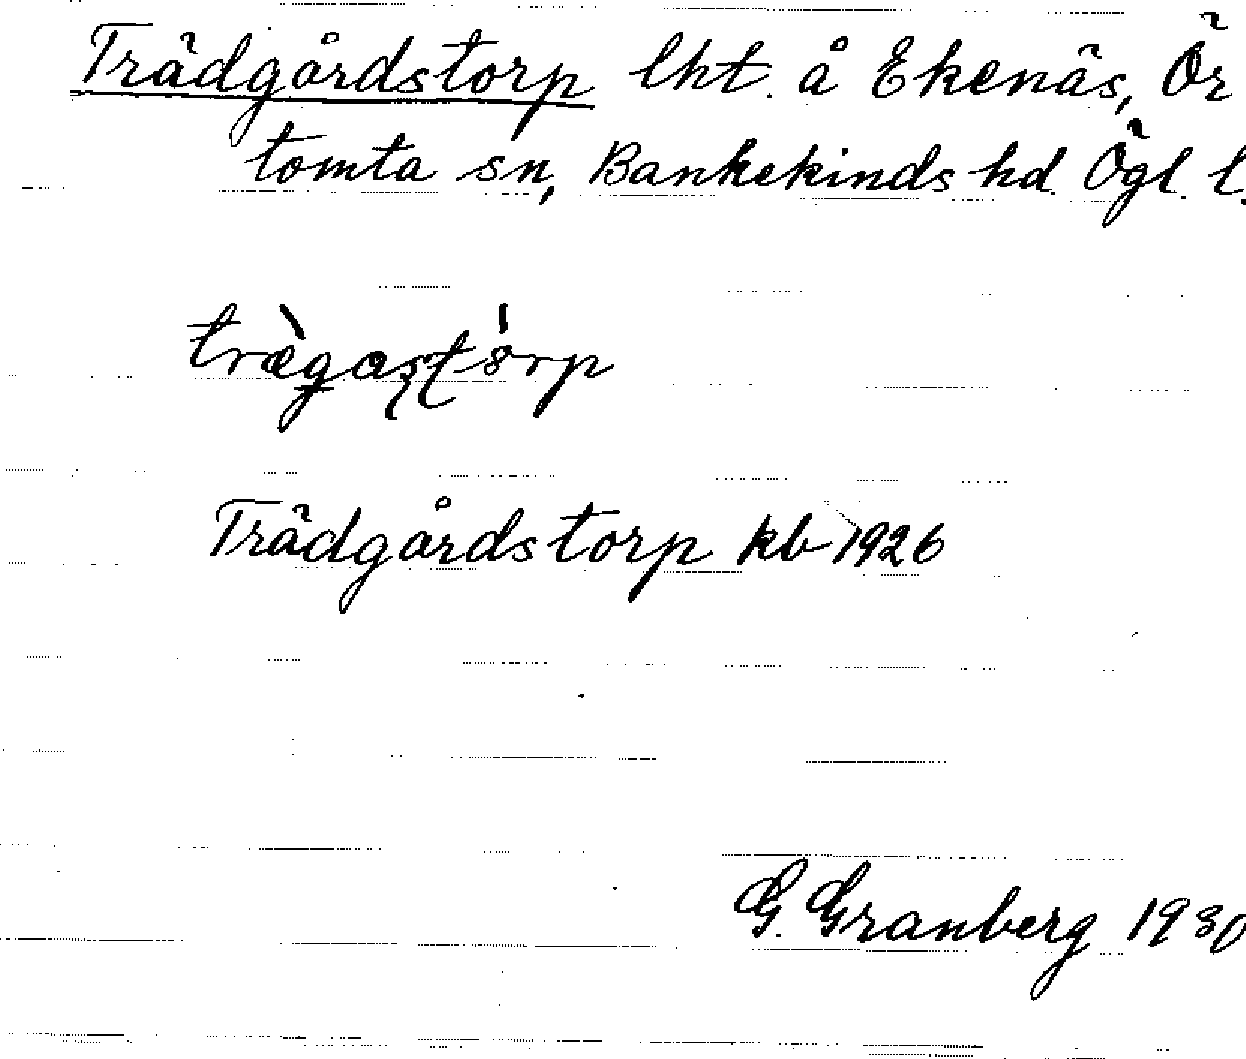 Trädgårdstorp lht. å Ekenäs, Ör
tomta sn, Bankekinds hd. Ögl. l.
trægastorp
Trädgårdstorp kb 1926
G. Granberg 1930